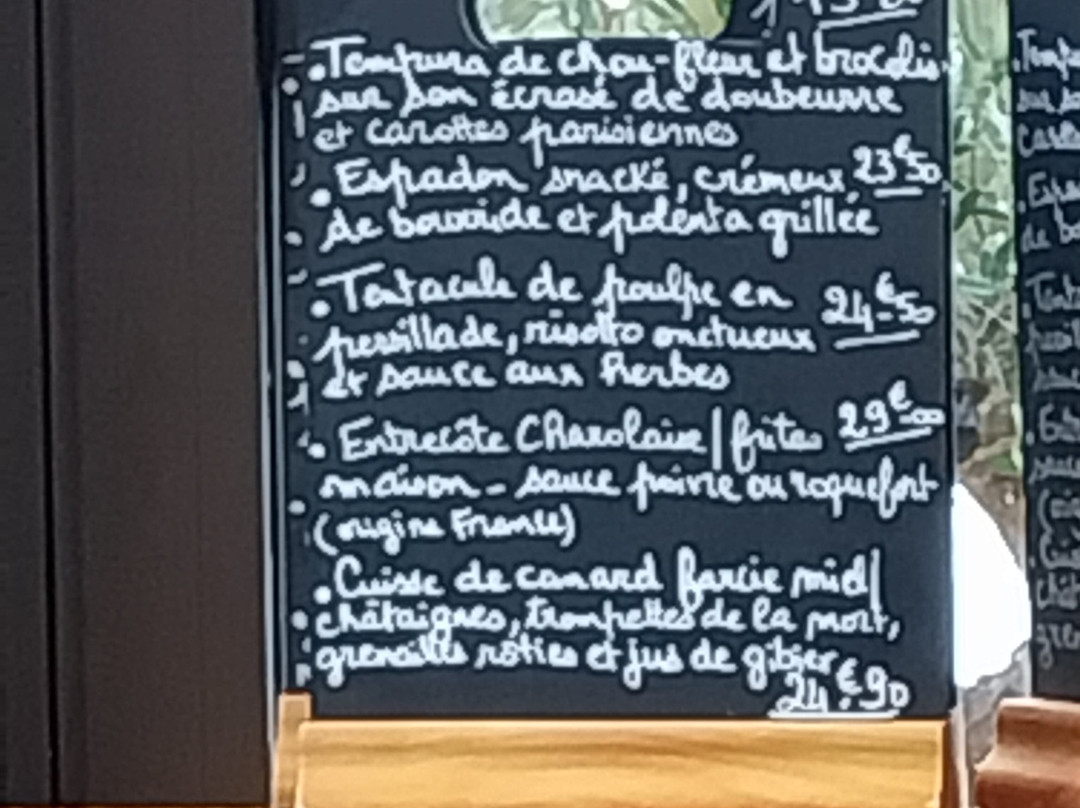 .Tempura de chou-fleur et brocolis
sur son écrasé de doubeurre
et carottes parisiennes
. Espadon snacké, crémeux 23€50
de bourride et polenta grillée
. Tentacule de poulpe en 24€50
persillade, risotto onctueux
et sauce aux herbes
. Entrecôte Charolaise / frites 29€00
maison - sauce poivre ou roquefort
(origine France)
. Cuisse de canard farcie miel/
châtaignes, trompettes de la mort,
grenailles rôties et jus de gibier
24€90